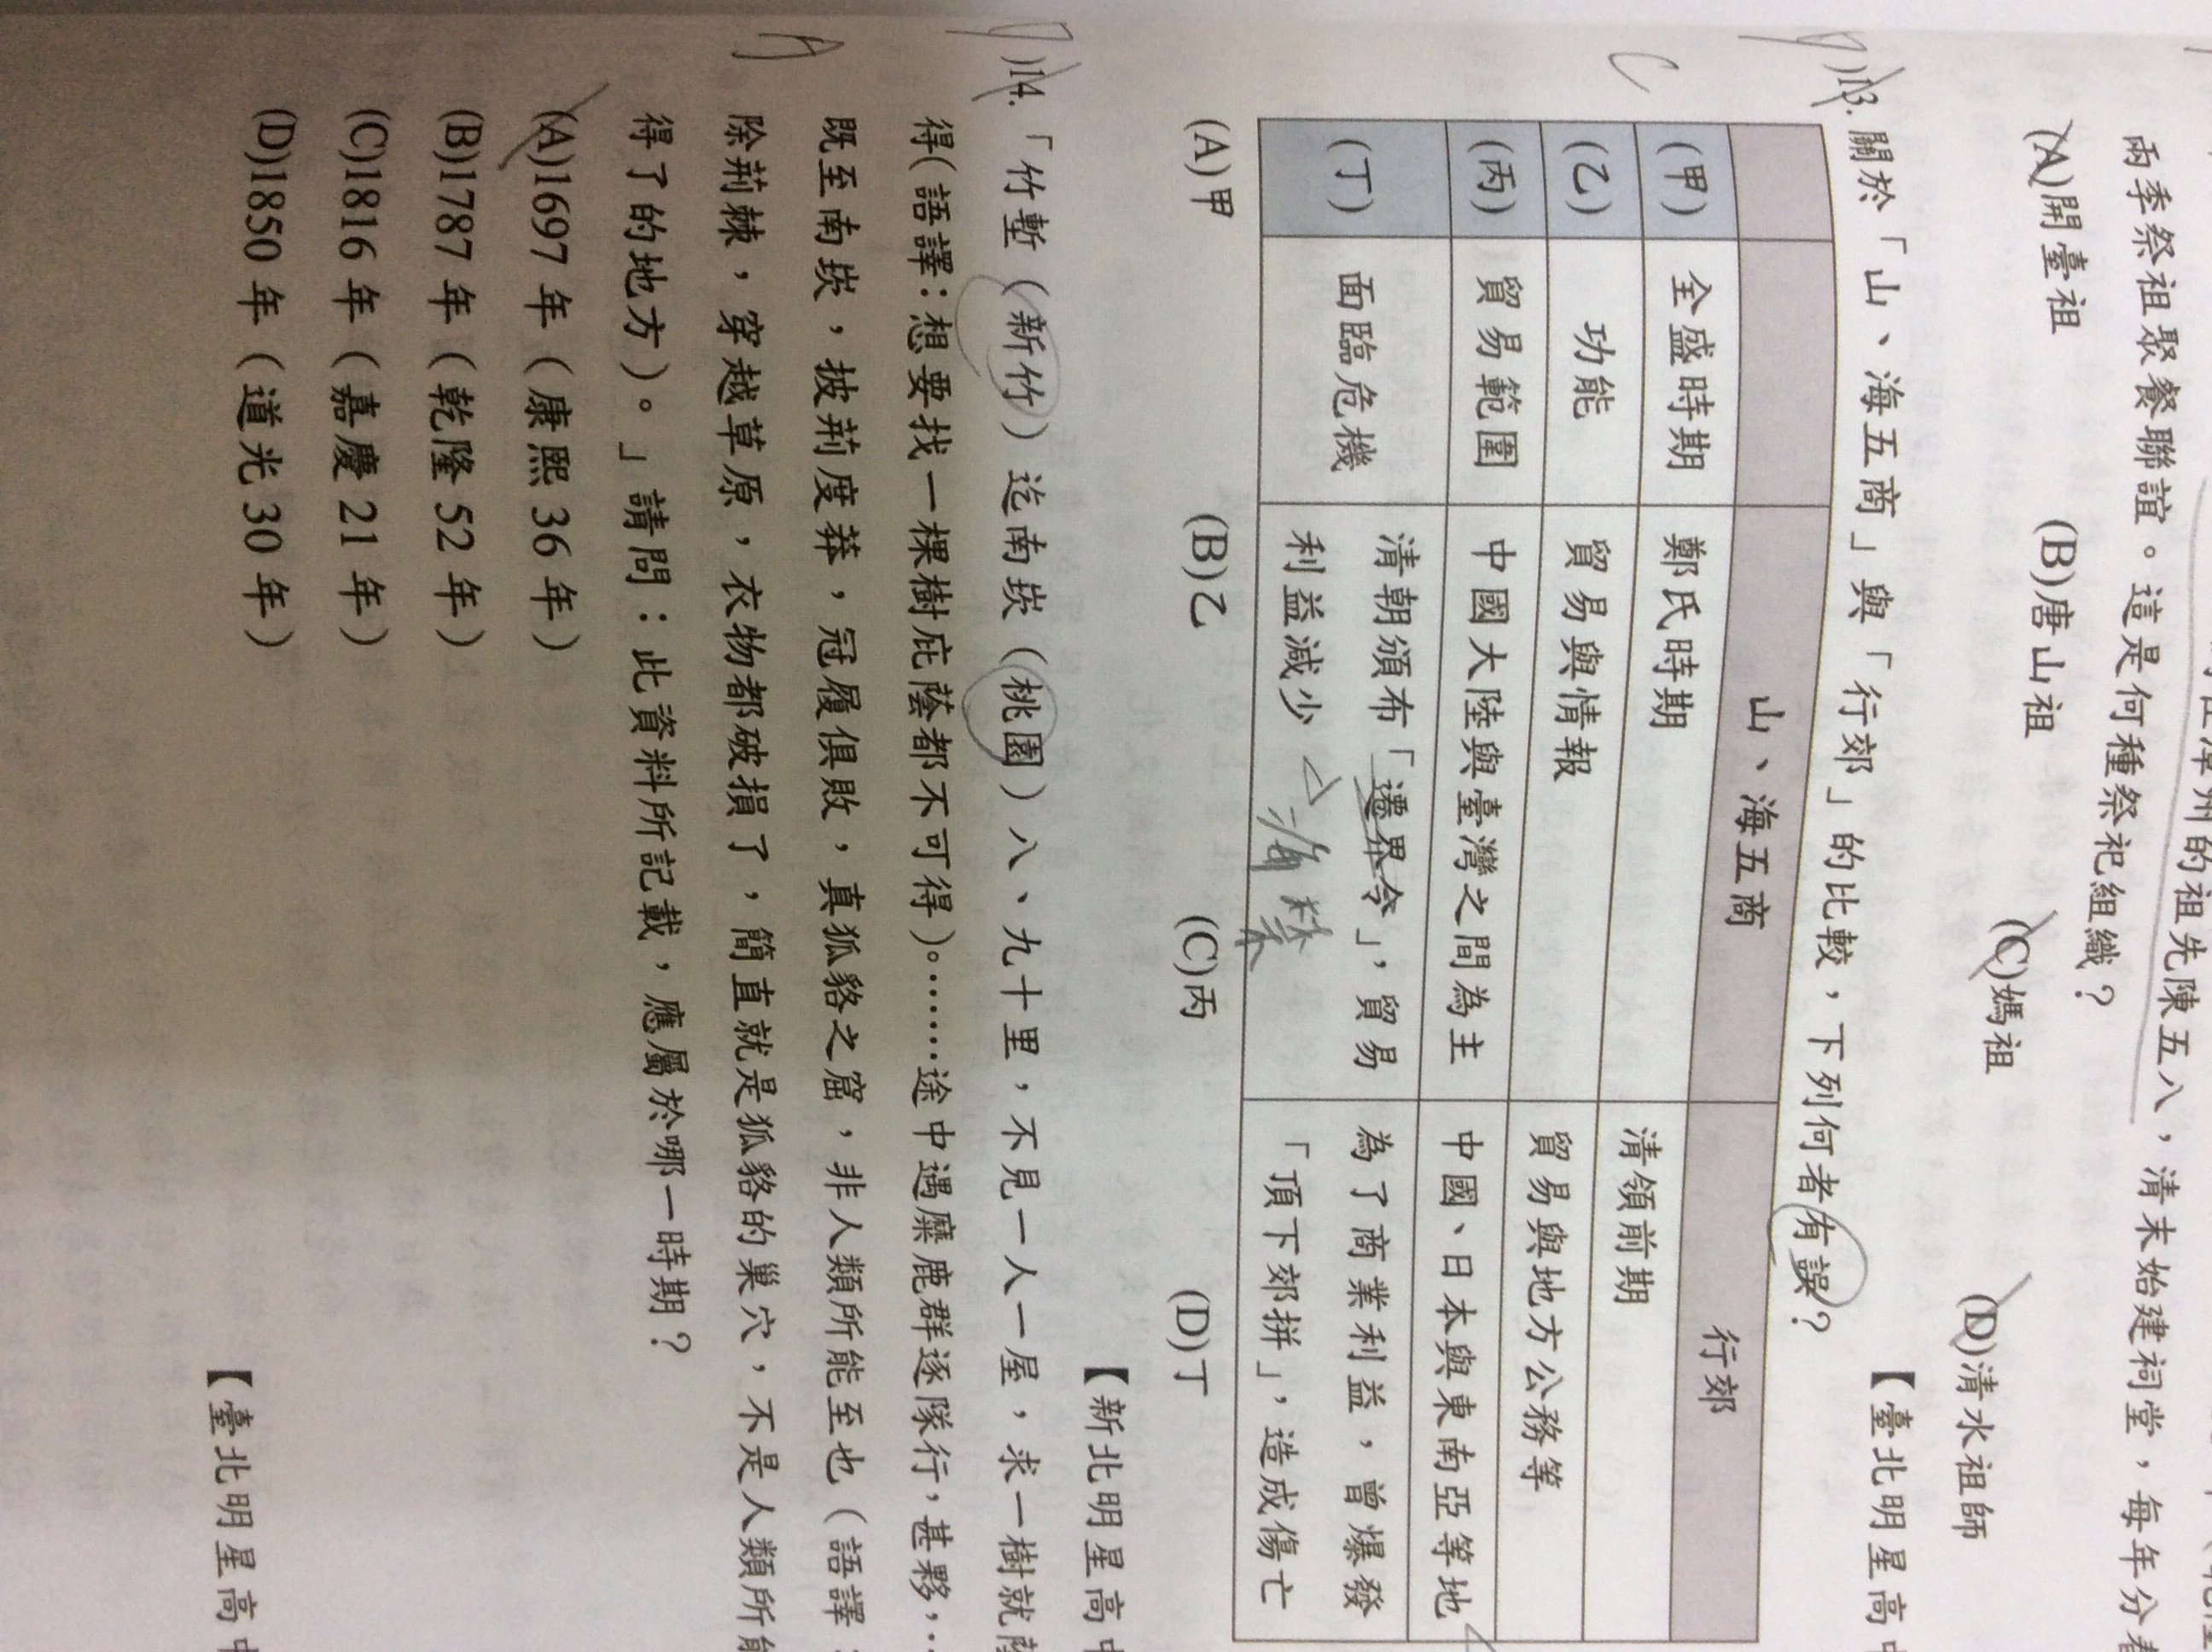 澤州的祖先陳五八，清末始建祠堂，每年分春
兩季祭祖聚餐聯誼。這是何種祭祀組織？
(A)開臺祖 (B)唐山祖 (C)媽祖 (D)清水祖師
【臺北明星高中
13. 關於「山、海五商」與「行郊」的比較，下列何者有誤？
C
山、海五商 行郊
(甲) 全盛時期 鄭氏時期 清領前期
(乙) 功能 貿易與情報 貿易與地方公務等
(丙) 貿易範圍 中國大陸與臺灣之間為主 中國、日本與東南亞等地
(丁) 面臨危機 清朝頒布「遷界令」，貿易 為了商業利益，曾爆發
利益減少 海禁 「頂下郊拼」，造成傷亡
(A)甲 (B)乙 (C)丙 (D)丁
【新北明星高中
14. 「竹塹（新竹）迄南崁（桃園）八、九十里，不見一人一屋，求一樹就蔭
得（語譯：想要找一棵樹庇蔭都不可得）。……途中遇麋鹿群逐隊行，甚夥，…
既至南崁，披荊度莽，冠履俱敗，真狐貉之窟，非人類所能至也（語譯：
A
除荊棘，穿越草原，衣物都破損了，簡直就是狐貉的巢穴，不是人類所能
得了的地方）。」請問：此資料所記載，應屬於哪一時期？
(A)1697 年（康熙 36 年）
(B)1787 年（乾隆 52 年）
(C)1816 年（嘉慶 21 年）
(D)1850 年（道光 30 年）
【臺北明星高中